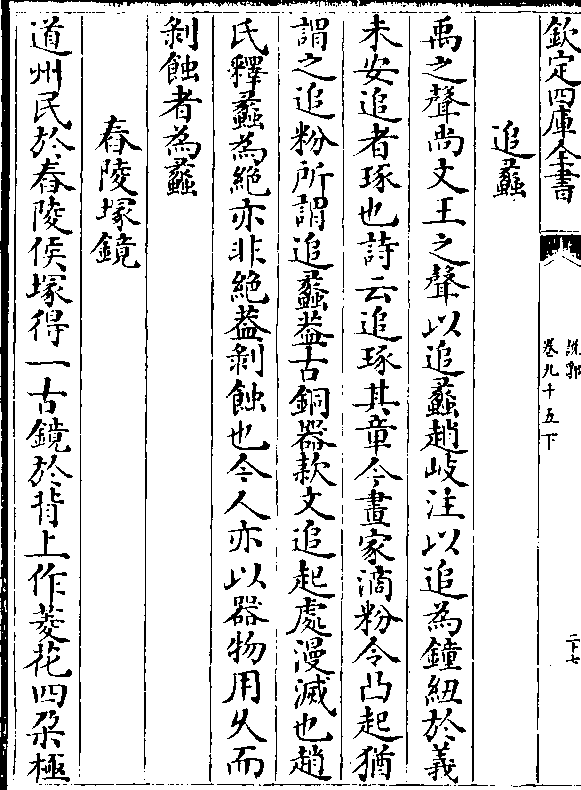 欽定四庫全書
說郛
卷九十五下
二十七
追蠡
禹之聲尚文王之聲以追蠡趙岐注以追為鐘紐於義
未安追者琢也詩云追琢其章今畫家滴粉令凸起猶
謂之追粉所謂追蠡葢古銅器款文追起處漫滅也趙
氏釋蠡為絶亦非絶葢剝蝕也今人亦以器物用久而
剝蝕者為蠡
舂陵塚鏡
道州民於舂陵侯塚得一古鏡於背上作菱花四朶極